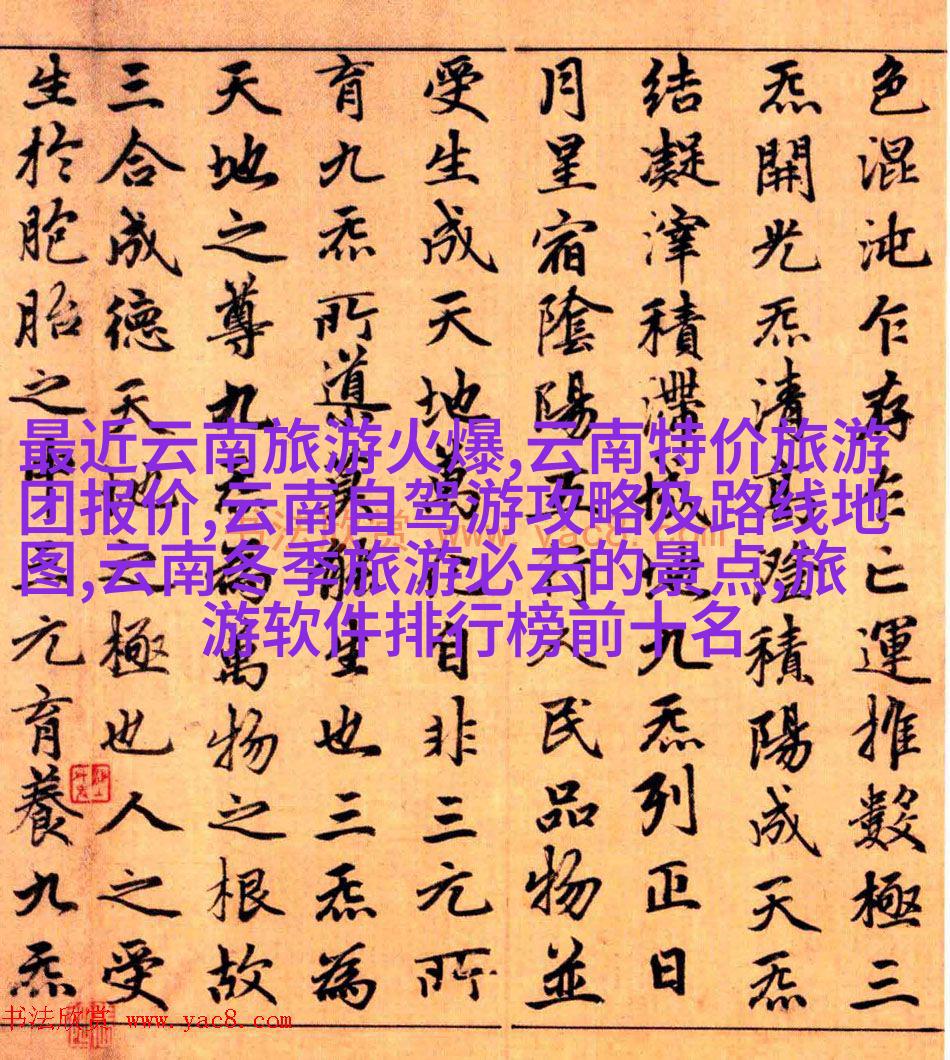 色混沌乍存乍亡運推數極三
炁開光炁清高澄積陽成天炁
結凝滓積滯成地九炁列正日
月星宿陰陽五行人民品物並
受生成天地萬化自非三元所
育九炁所導莫能生也三炁為
天地之尊九炁為萬物之根故
三合成德天地之極也人之受
生於胞胎之中三元育養九炁
最近云南旅游火爆,云南特价旅游
团报价,云南自驾游攻略及路线地
图,云南冬季旅游必去的景点,旅
游软件排行榜前十名
书法欣赏 www.yac8.com
书法欣赏 www.yac8.com